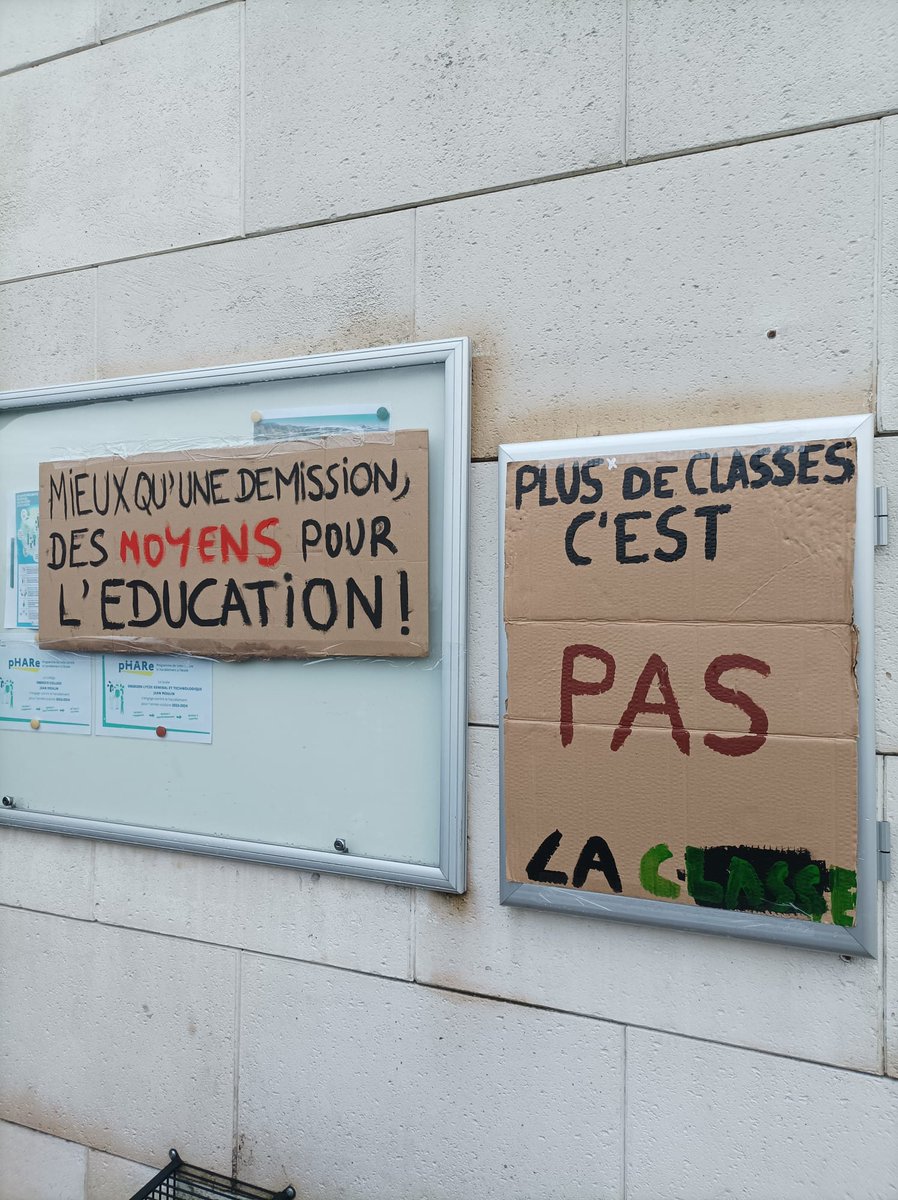 MIEUX QU'UNE DEMISSION,
DES MOYENS POUR
L'EDUCATION!
PLUS* DE CLASSES
C'EST
PAS
LA CLASSE
pHARe
pHARe
JEAN MOULIN
JEAN MOULIN